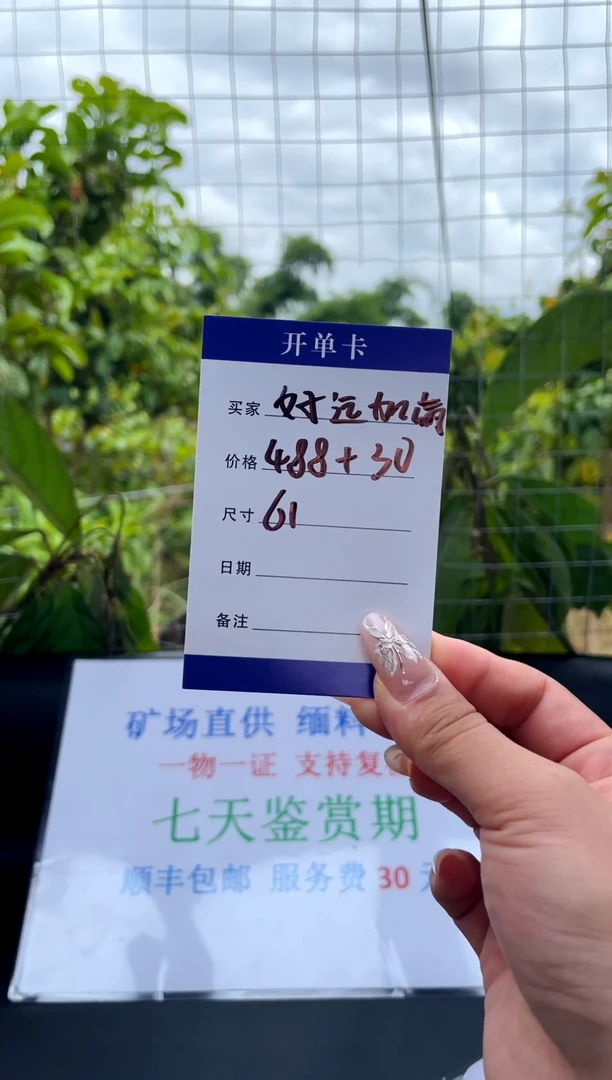 开单卡
买家 好运加满
价格 488+30
尺寸 61
日期
备注
矿场直供 缅料
一物一证 支持复
七天鉴赏期
顺丰包邮 服务费 30